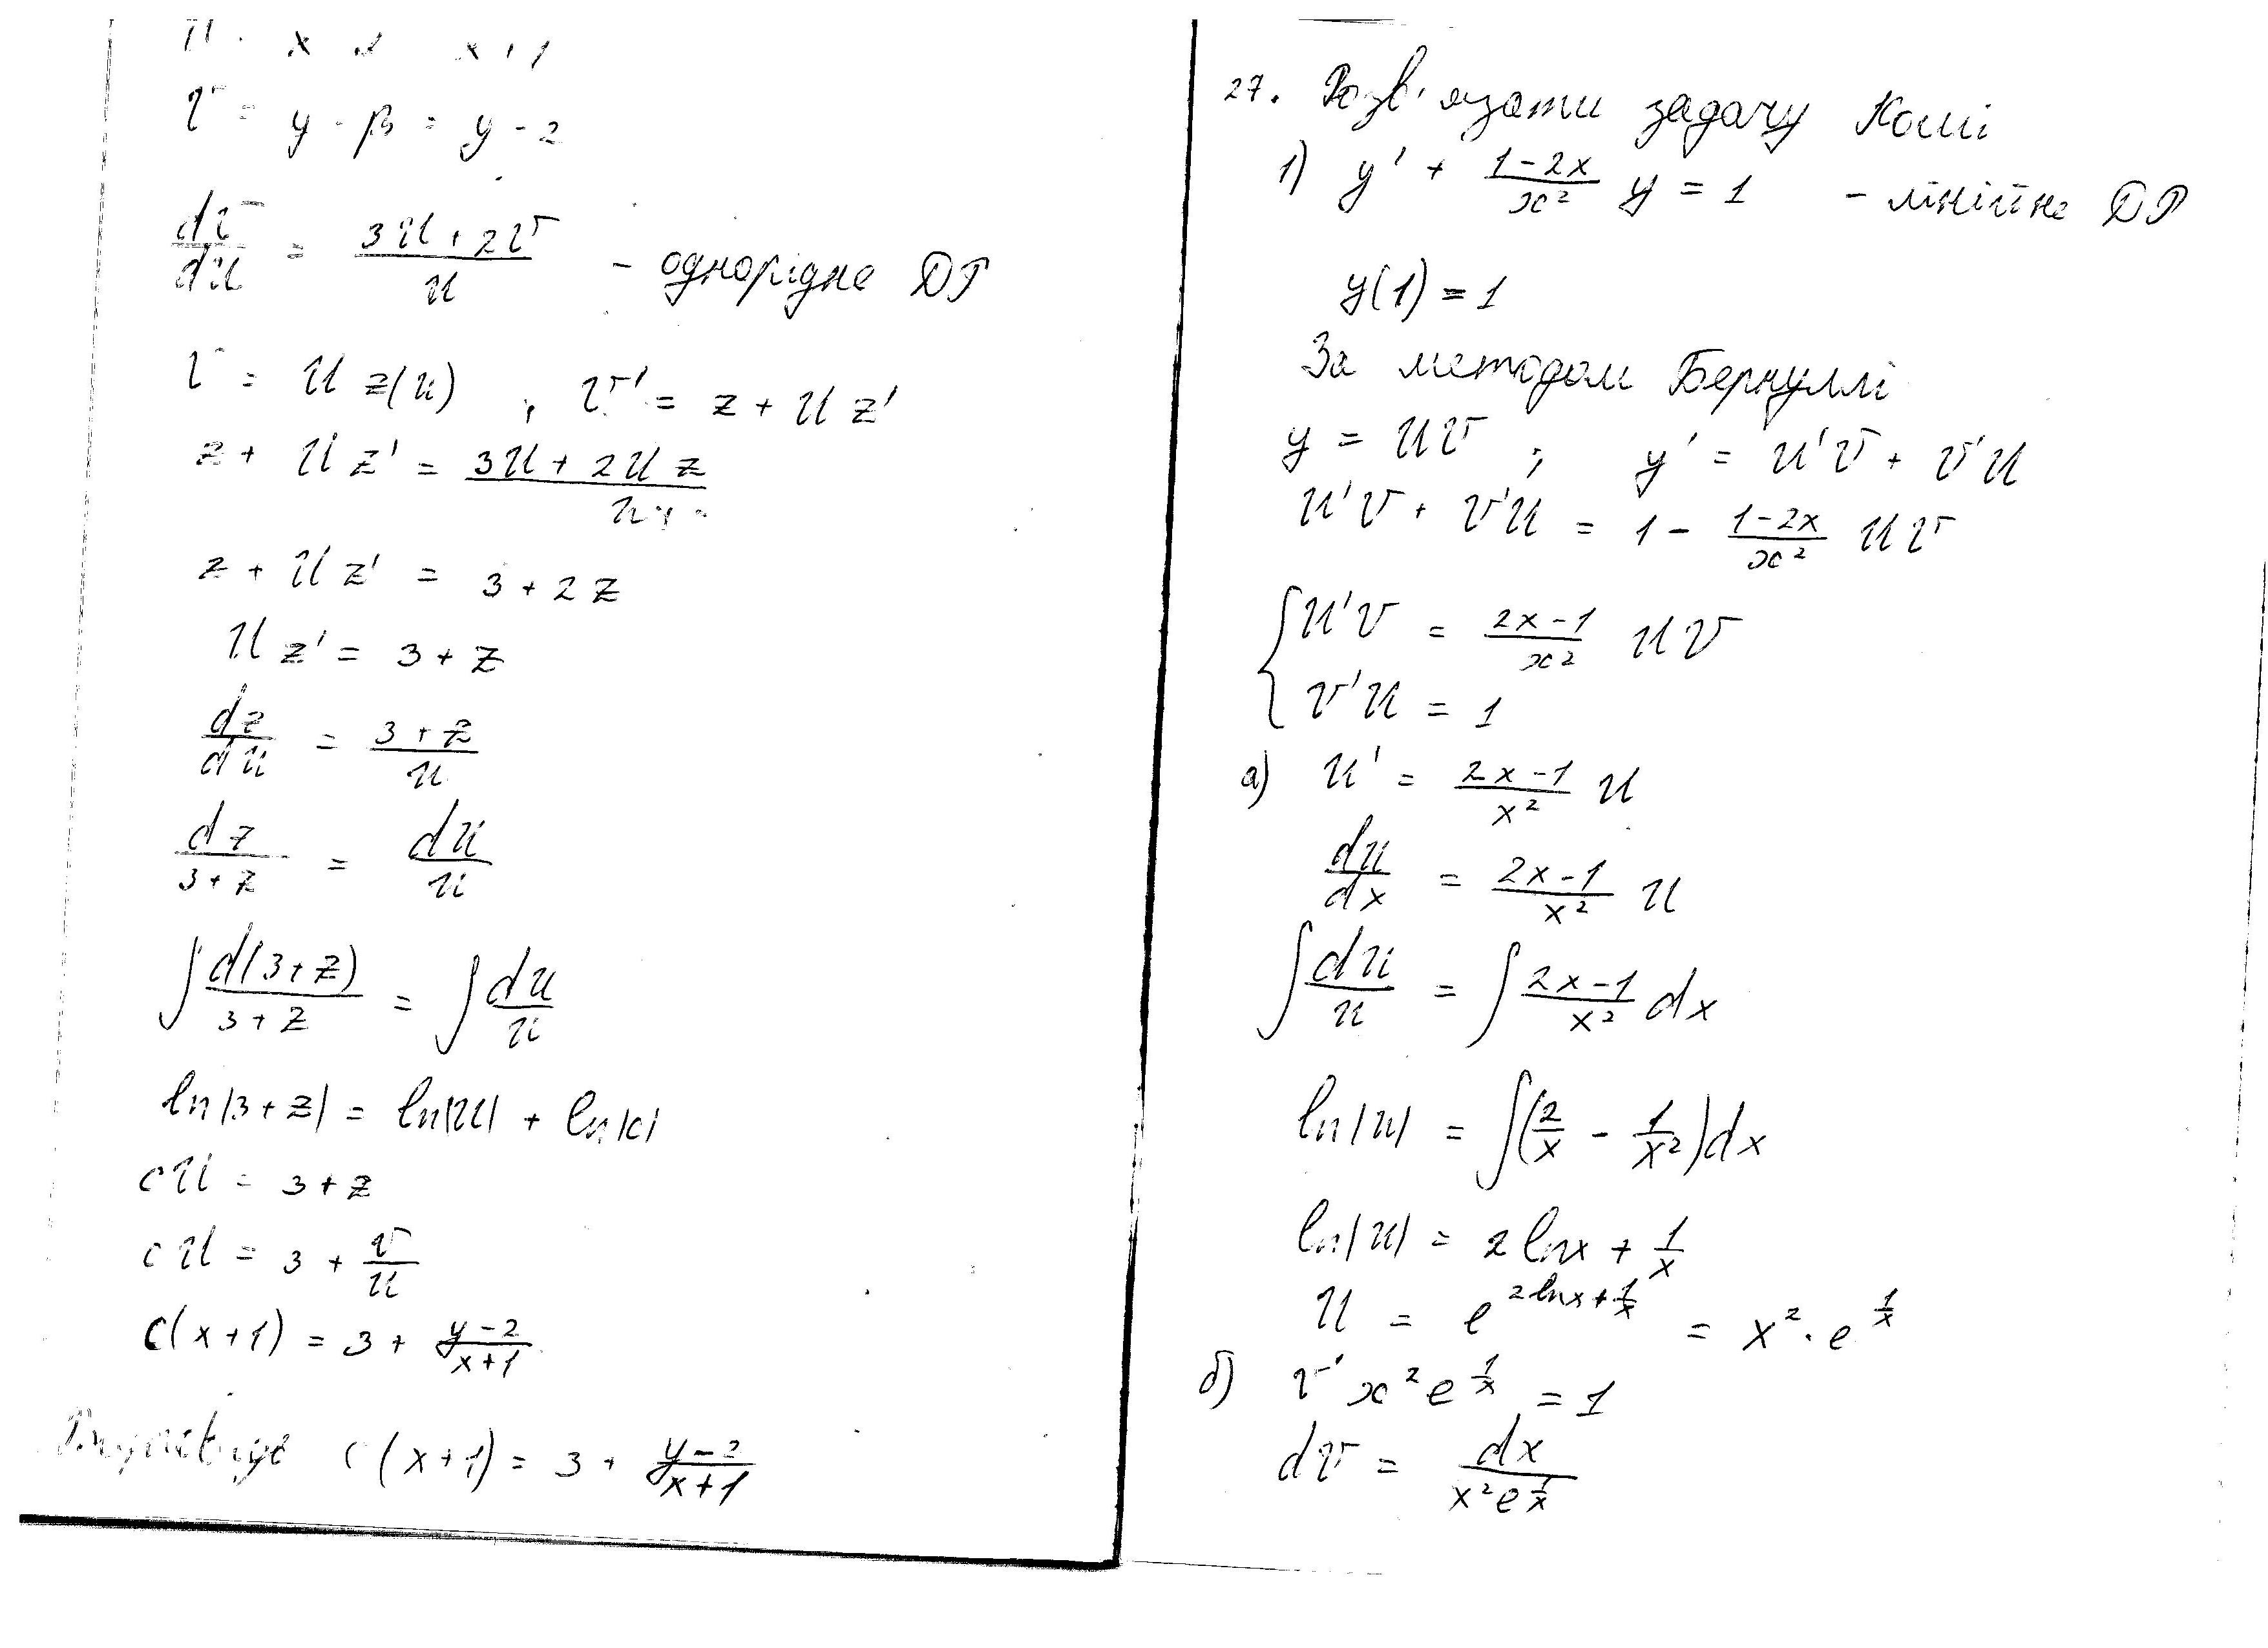 x x + 1
v = y - β = y - 2
dv/du = (3u + 2v)/u - однорідне ДР
v = u z(u) , v' = z + u z'
z + u z' = (3u + 2u z)/u
z + u z' = 3 + 2z
u z' = 3 + z
dz/du = (3 + z)/u
dz/(3 + z) = du/u
∫ d(3 + z)/(3 + z) = ∫ du/u
ln|3 + z| = ln|u| + ln|c|
cu = 3 + z
cu = 3 + v/u
c(x + 1) = 3 + (y - 2)/(x + 1)
c(x + 1) = 3 + (y - 2)/(x + 1)
27. Розв'язати задачу Коші
1) y' + (1 - 2x)/x² y = 1 - лінійне ДР
y(1) = 1
За методом Бернуллі
y = uv ; y' = u'v + v'u
u'v + v'u = 1 - (1 - 2x)/x² uv
{ u'v = (2x - 1)/x² uv
v'u = 1
а) u' = (2x - 1)/x² u
du/dx = (2x - 1)/x² u
∫ du/u = ∫ (2x - 1)/x² dx
ln|u| = ∫(2/x - 1/x²)dx
ln|u| = 2 lnx + 1/x
u = e^(2 lnx + 1/x) = x² · e^(1/x)
б) v' x² e^(1/x) = 1
dv = dx/(x² e^(1/x))